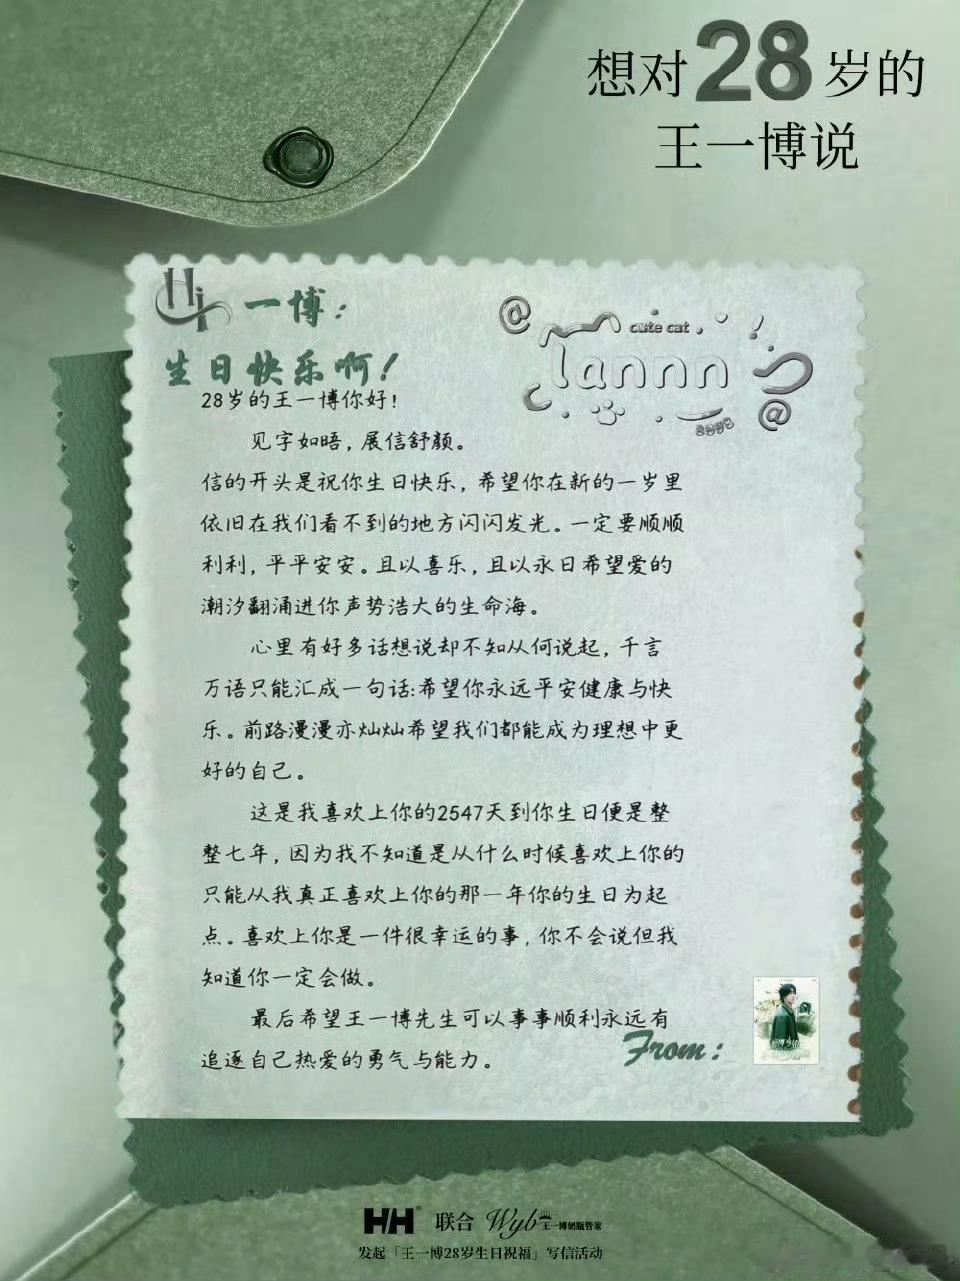 想对28岁的
王一博说
Hi 一博：
生日快乐啊！
@ cute cat
lannn
@
28岁的王一博你好！
见字如晤，展信舒颜。
信的开头是祝你生日快乐，希望你在新的一岁里
依旧在我们看不到的地方闪闪发光。一定要顺顺
利利，平平安安。且以喜乐，且以永日希望爱的
潮汐翻涌进你声势浩大的生命海。
心里有好多话想说却不知从何说起，千言
万语只能汇成一句话:希望你永远平安健康与快
乐。前路漫漫亦灿灿希望我们都能成为理想中更
好的自己。
这是我喜欢上你的2547天到你生日便是整
整七年，因为我不知道是从什么时候喜欢上你的
只能从我真正喜欢上你的那一年你的生日为起
点。喜欢上你是一件很幸运的事，你不会说但我
知道你一定会做。
最后希望王一博先生可以事事顺利永远有
追逐自己热爱的勇气与能力。
From：
HH® 联合 Wyb王一博奶瓶管家
发起「王一博28岁生日祝福」写信活动